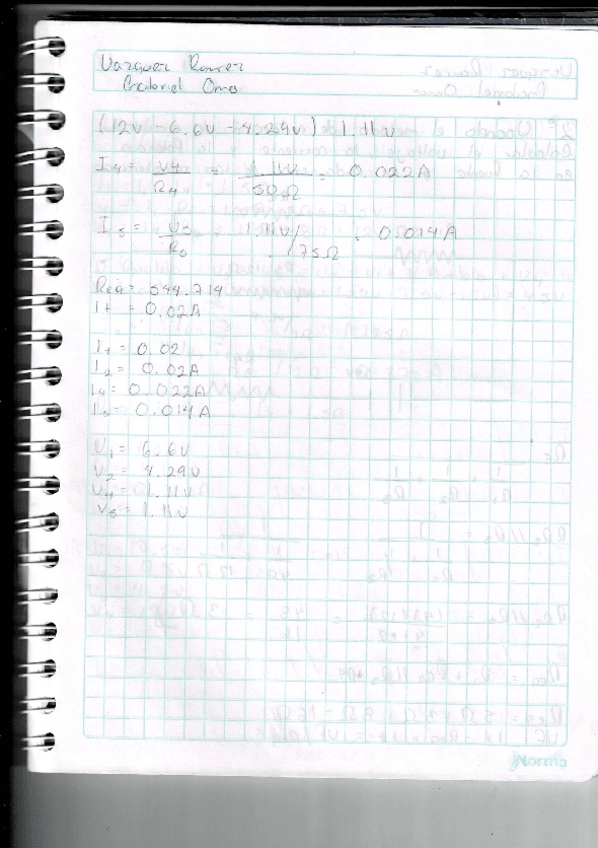 Vazquez Ramirez
Gabriel Omar
(12v - 6.6v - 4.29v) = 1.11v
I4 = V4 / R4 = 1.11v / 50Ω = 0.022A
I5 = V5 / R5 = 1.11v / 75Ω = 0.014A
Req = 544.714
It = 0.02A
I1 = 0.02
I2 = 0.02A
I4 = 0.022A
I5 = 0.014A
V1 = 6.6v
V2 = 4.29v
V4 = 1.11v
V5 = 1.11v
Norma